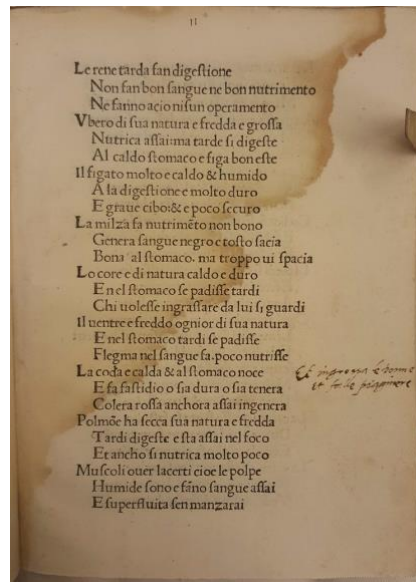 11
Le rene tarda fan digestione
Non fan bon sangue ne bon nutrimento
Ne fanno acio nisun operamento
Vbero di sua natura e fredda e grossa
Nutrica assai:ma tarde si digeste
Al caldo stomaco e figa bon este
Il figato molto e caldo & humido
A la digestione e molto duro
E graue cibo:& e poco securo
La milza fa nutrimẽto non bono
Genera sangue negro e tosto sacia
Bona al stomaco. ma troppo ui spacia
Lo core e di natura caldo e duro
E nel stomaco se padisse tardi
Chi uolesse ingrassare da lui si guardi
Il uentre e freddo ognior di sua natura
E nel stomaco tardi se padisse
Flegma nel sangue fa. poco nutrisse
La coda e calda & al stomaco noce
E fa fastidio o sia dura o sia tenera
Colera rossa anchora assai ingenera
Polmõe ha secca sua natura e fredda
Tardi digeste e sta assai nel foco
Et ancho si nutrica molto poco
Muscoli ouer lacerti cioe le polpe
Humide sono e fãno sangue assai
E superfluita sen manzarai